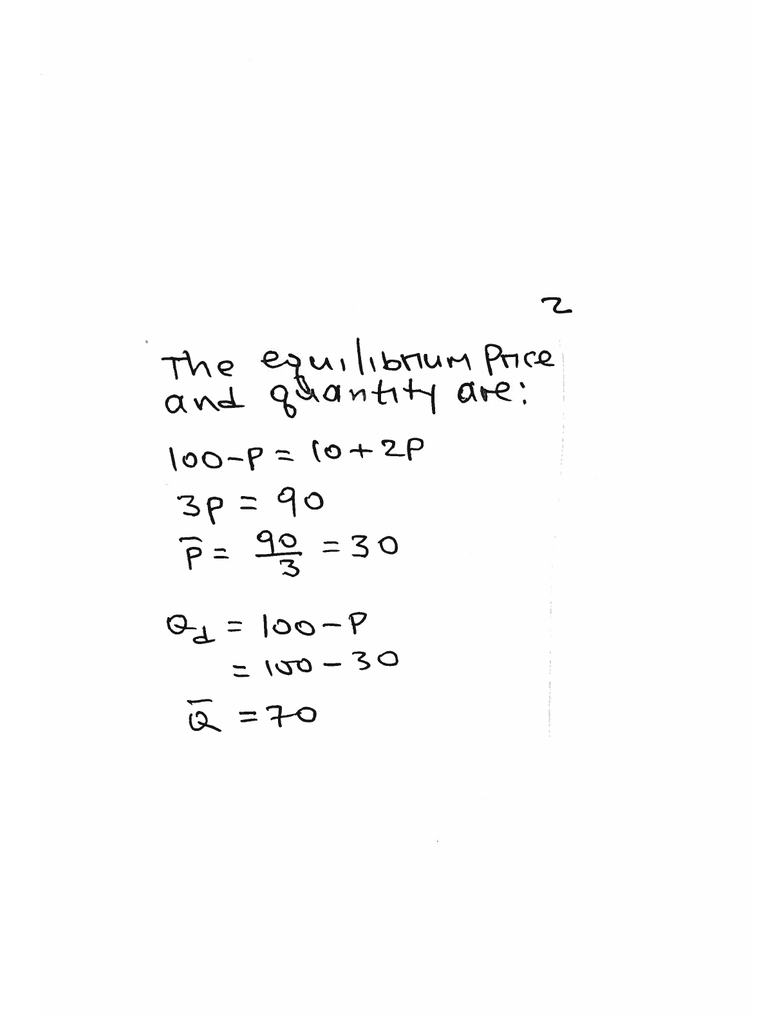 2
The equilibrium Price
and quantity are:
100-P = 10+2P
3P = 90
P̅ = 90/3 = 30
Qd = 100-P
= 100-30
Q̅ = 70